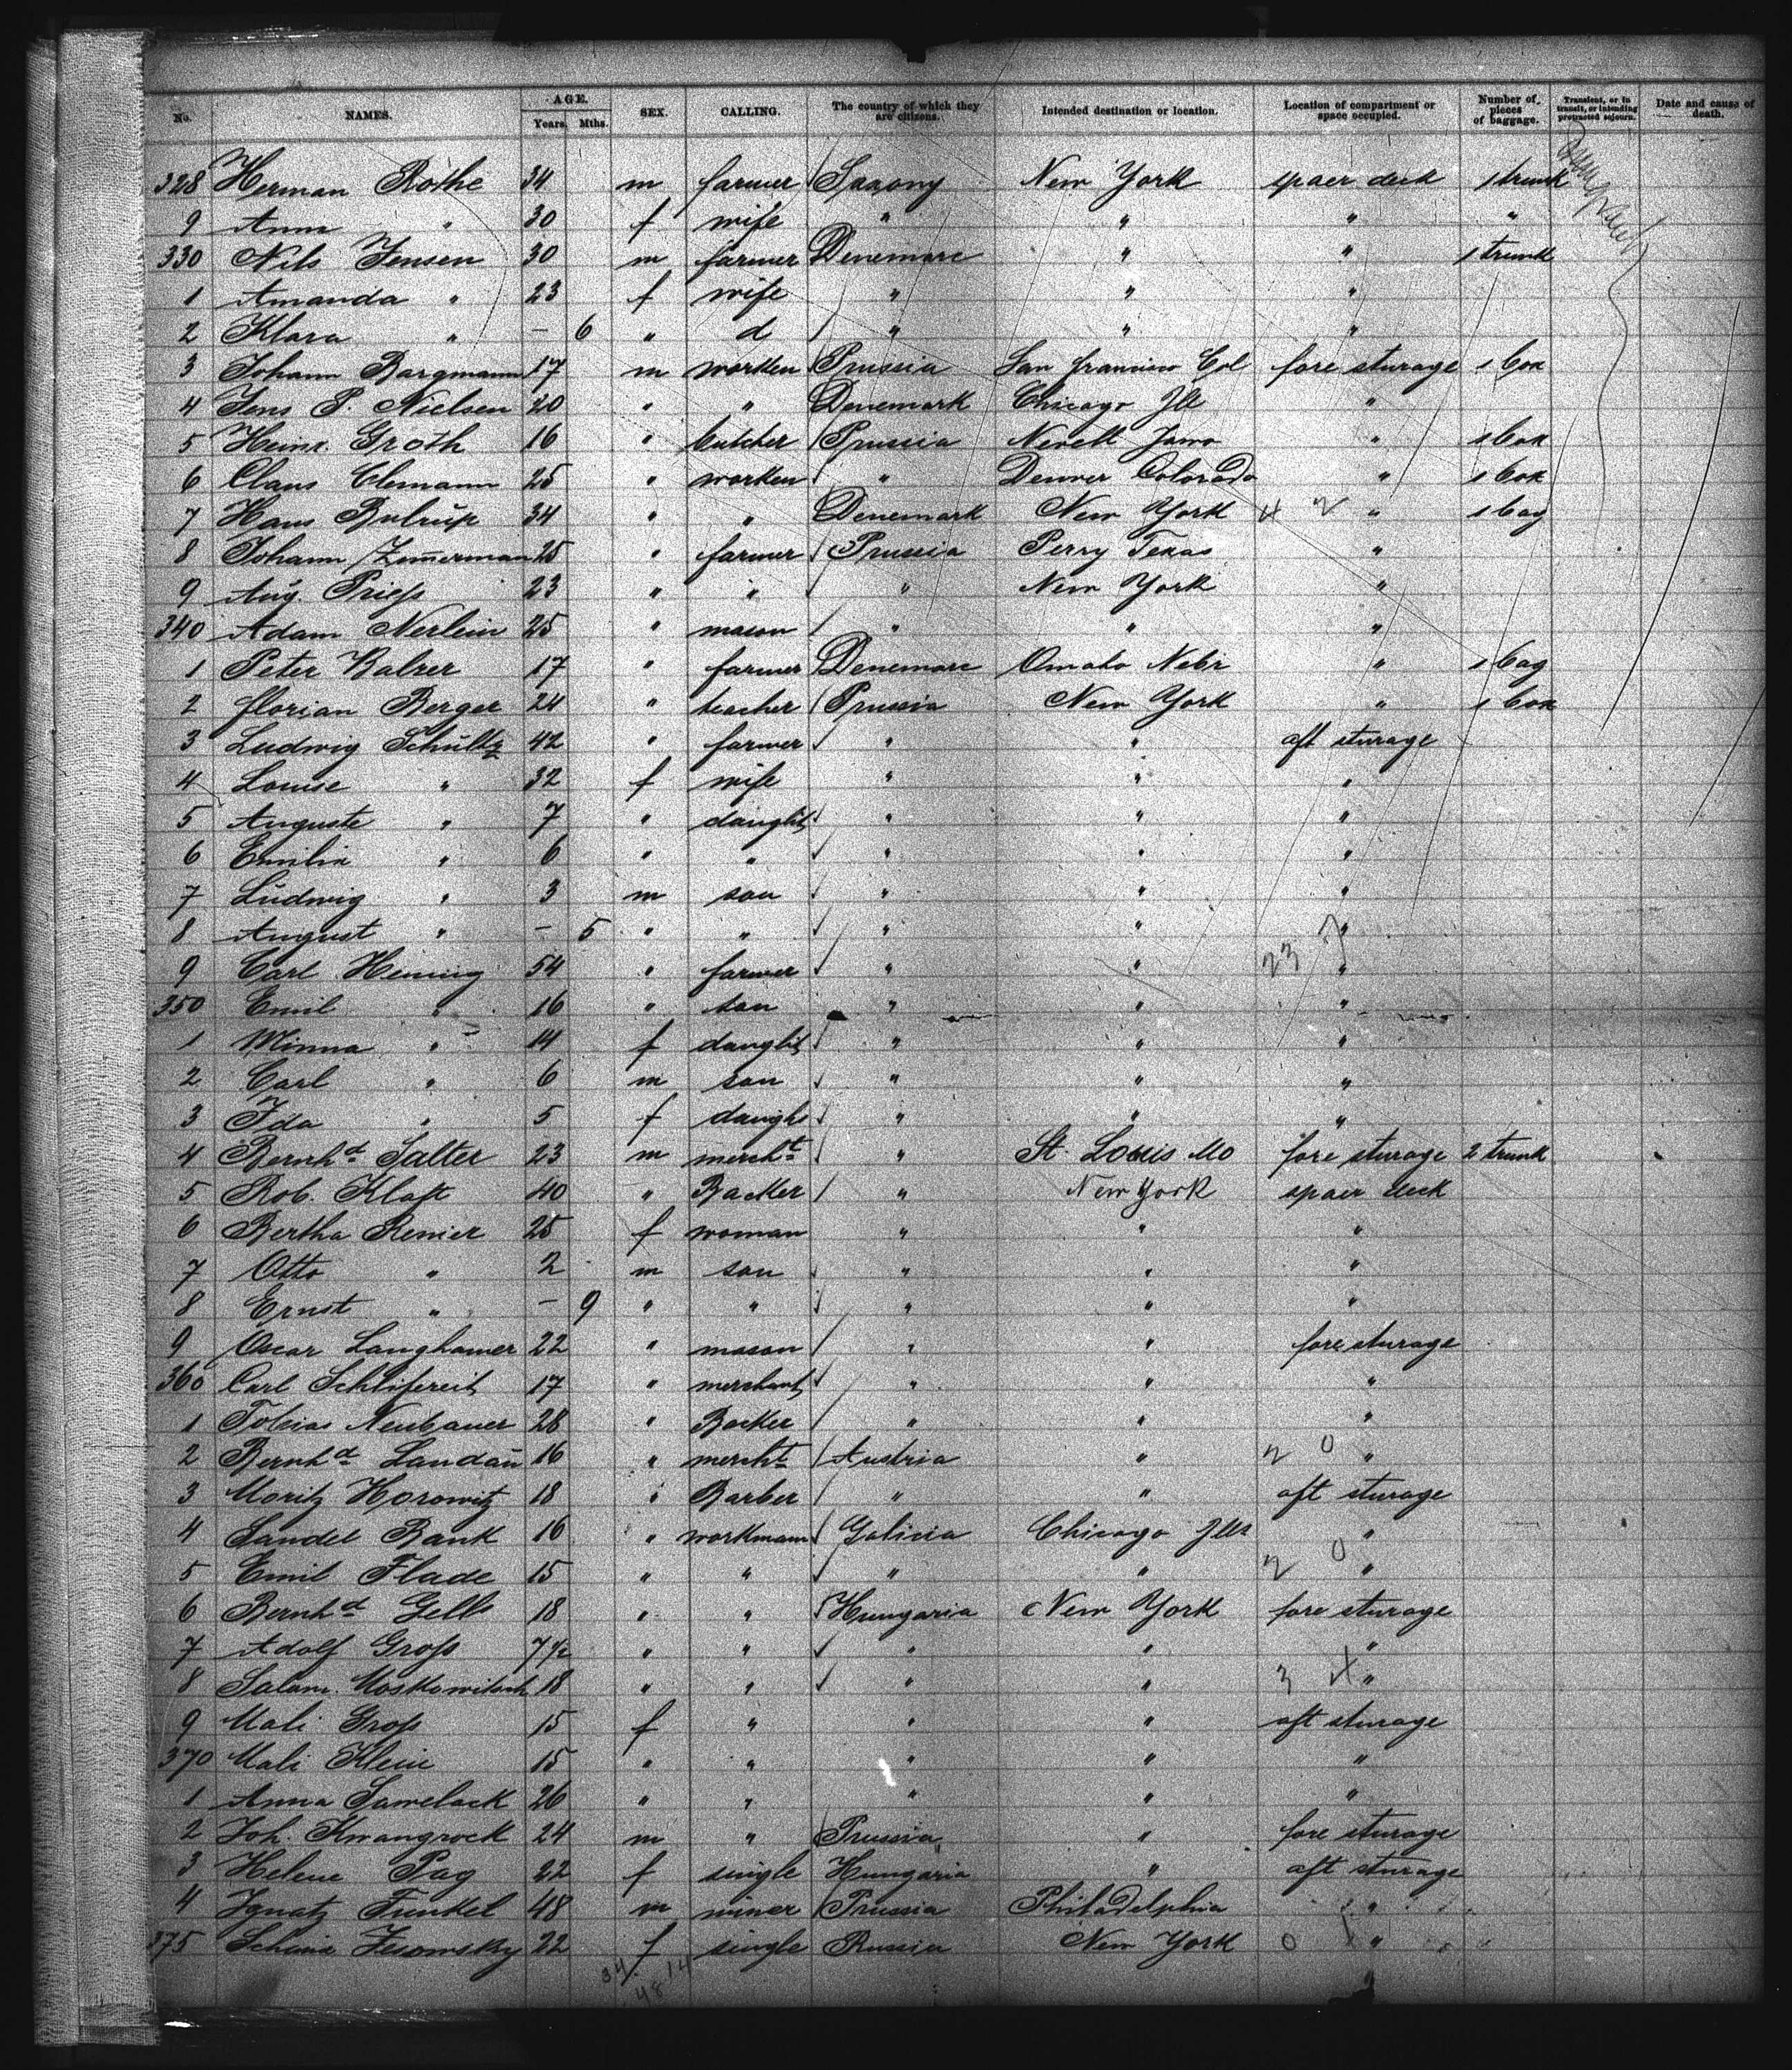 No. NAMES. AGE. Years. Mths. SEX. CALLING. The country of which they are citizens. Intended destination or location. Location of compartment or space occupied. Number of pieces of baggage. Transient, or in transit, or intending protracted sojourn. Date and cause of death.
328 Herman Rothe 34 m farmer Saxony New York spaer deck 1 trunk
9 Ann " 30 f wife " " " "
330 Nils Jensen 30 m farmer Denemarc " " 1 trunk
1 Amanda " 23 f wife " " "
2 Klara " – 6 " d " " "
3 Johann Bargmann 17 m worken Prussia San francisco Col fore sturage 1 box
4 Jens P. Nielsen 20 " " Denemark Chicago Ill "
5 Heinr. Groth 16 " butcher Prussia Newell Jowa " 1 box
6 Claus Clemann 25 " worken " Denver Colorado " 1 box
7 Hans Bulrup 34 " " Denemark New York 4 2 " 1 bag
8 Johann Zimerman 25 " farmer Prussia Perry Texas "
9 Aug. Prieß 23 " " " New York "
340 Adam Nerlein 25 " mason " " "
1 Peter Balrer 17 " farmer Denemarc Omaho Nebr " 1 bag
2 florian Berger 24 " teacher Prussia New York " 1 box
3 Ludwig Schultz 42 " farmer " " aft sturage
4 Louise " 32 f wife " " "
5 Auguste " 7 " daught " " "
6 Emilia " 6 " " " " "
7 Ludwig " 3 m son " " "
8 August " – 5 " " " " "
9 Carl Hennig 54 " farmer " " 23 7 "
350 Emil " 16 " son " " "
1 Minna " 14 f daught " " "
2 Carl " 6 m son " " "
3 Ida " 5 f daught " " "
4 Bernhd Salter 23 m mercht " St. Louis Mo fore sturage 2 trunk
5 Rob. Kloft 40 " Backer " New York spaer deck
6 Bertha Renier 25 f woman " " "
7 Otto " 2 m son " " "
8 Ernst " – 9 " " " " "
9 Oscar Langhamer 22 " mason " " fore sturage
360 Carl Schlifereit 17 " merchant " " "
1 Tobias Neubauer 28 " Backer " " "
2 Bernhd Landau 16 " mercht Austria " 2 0 "
3 Moritz Horowitz 18 " Barber " " aft sturage
4 Sandel Bank 16 " workmann Galicia Chicago Ills "
5 Emil Flade 15 " " " " 2 0 "
6 Bernhd Gelb 18 " " Hungaria New York fore sturage
7 Adolf Groß 7½ " " " " "
8 Salam. Moskowitsch 18 " " " " 3 4 "
9 Mali Groß 15 f " " " aft sturage
370 Mali Klein 15 " " " " "
1 Anna Samelack 26 " " " " "
2 Joh. Kwangrock 24 m " Prussia " fore sturage
3 Helene Pag 22 f single Hungaria " aft sturage
4 Ignatz Funkel 48 m miner Prussia Philadelphia "
375 22 f single Russia New York 0 1 "
34 14
48